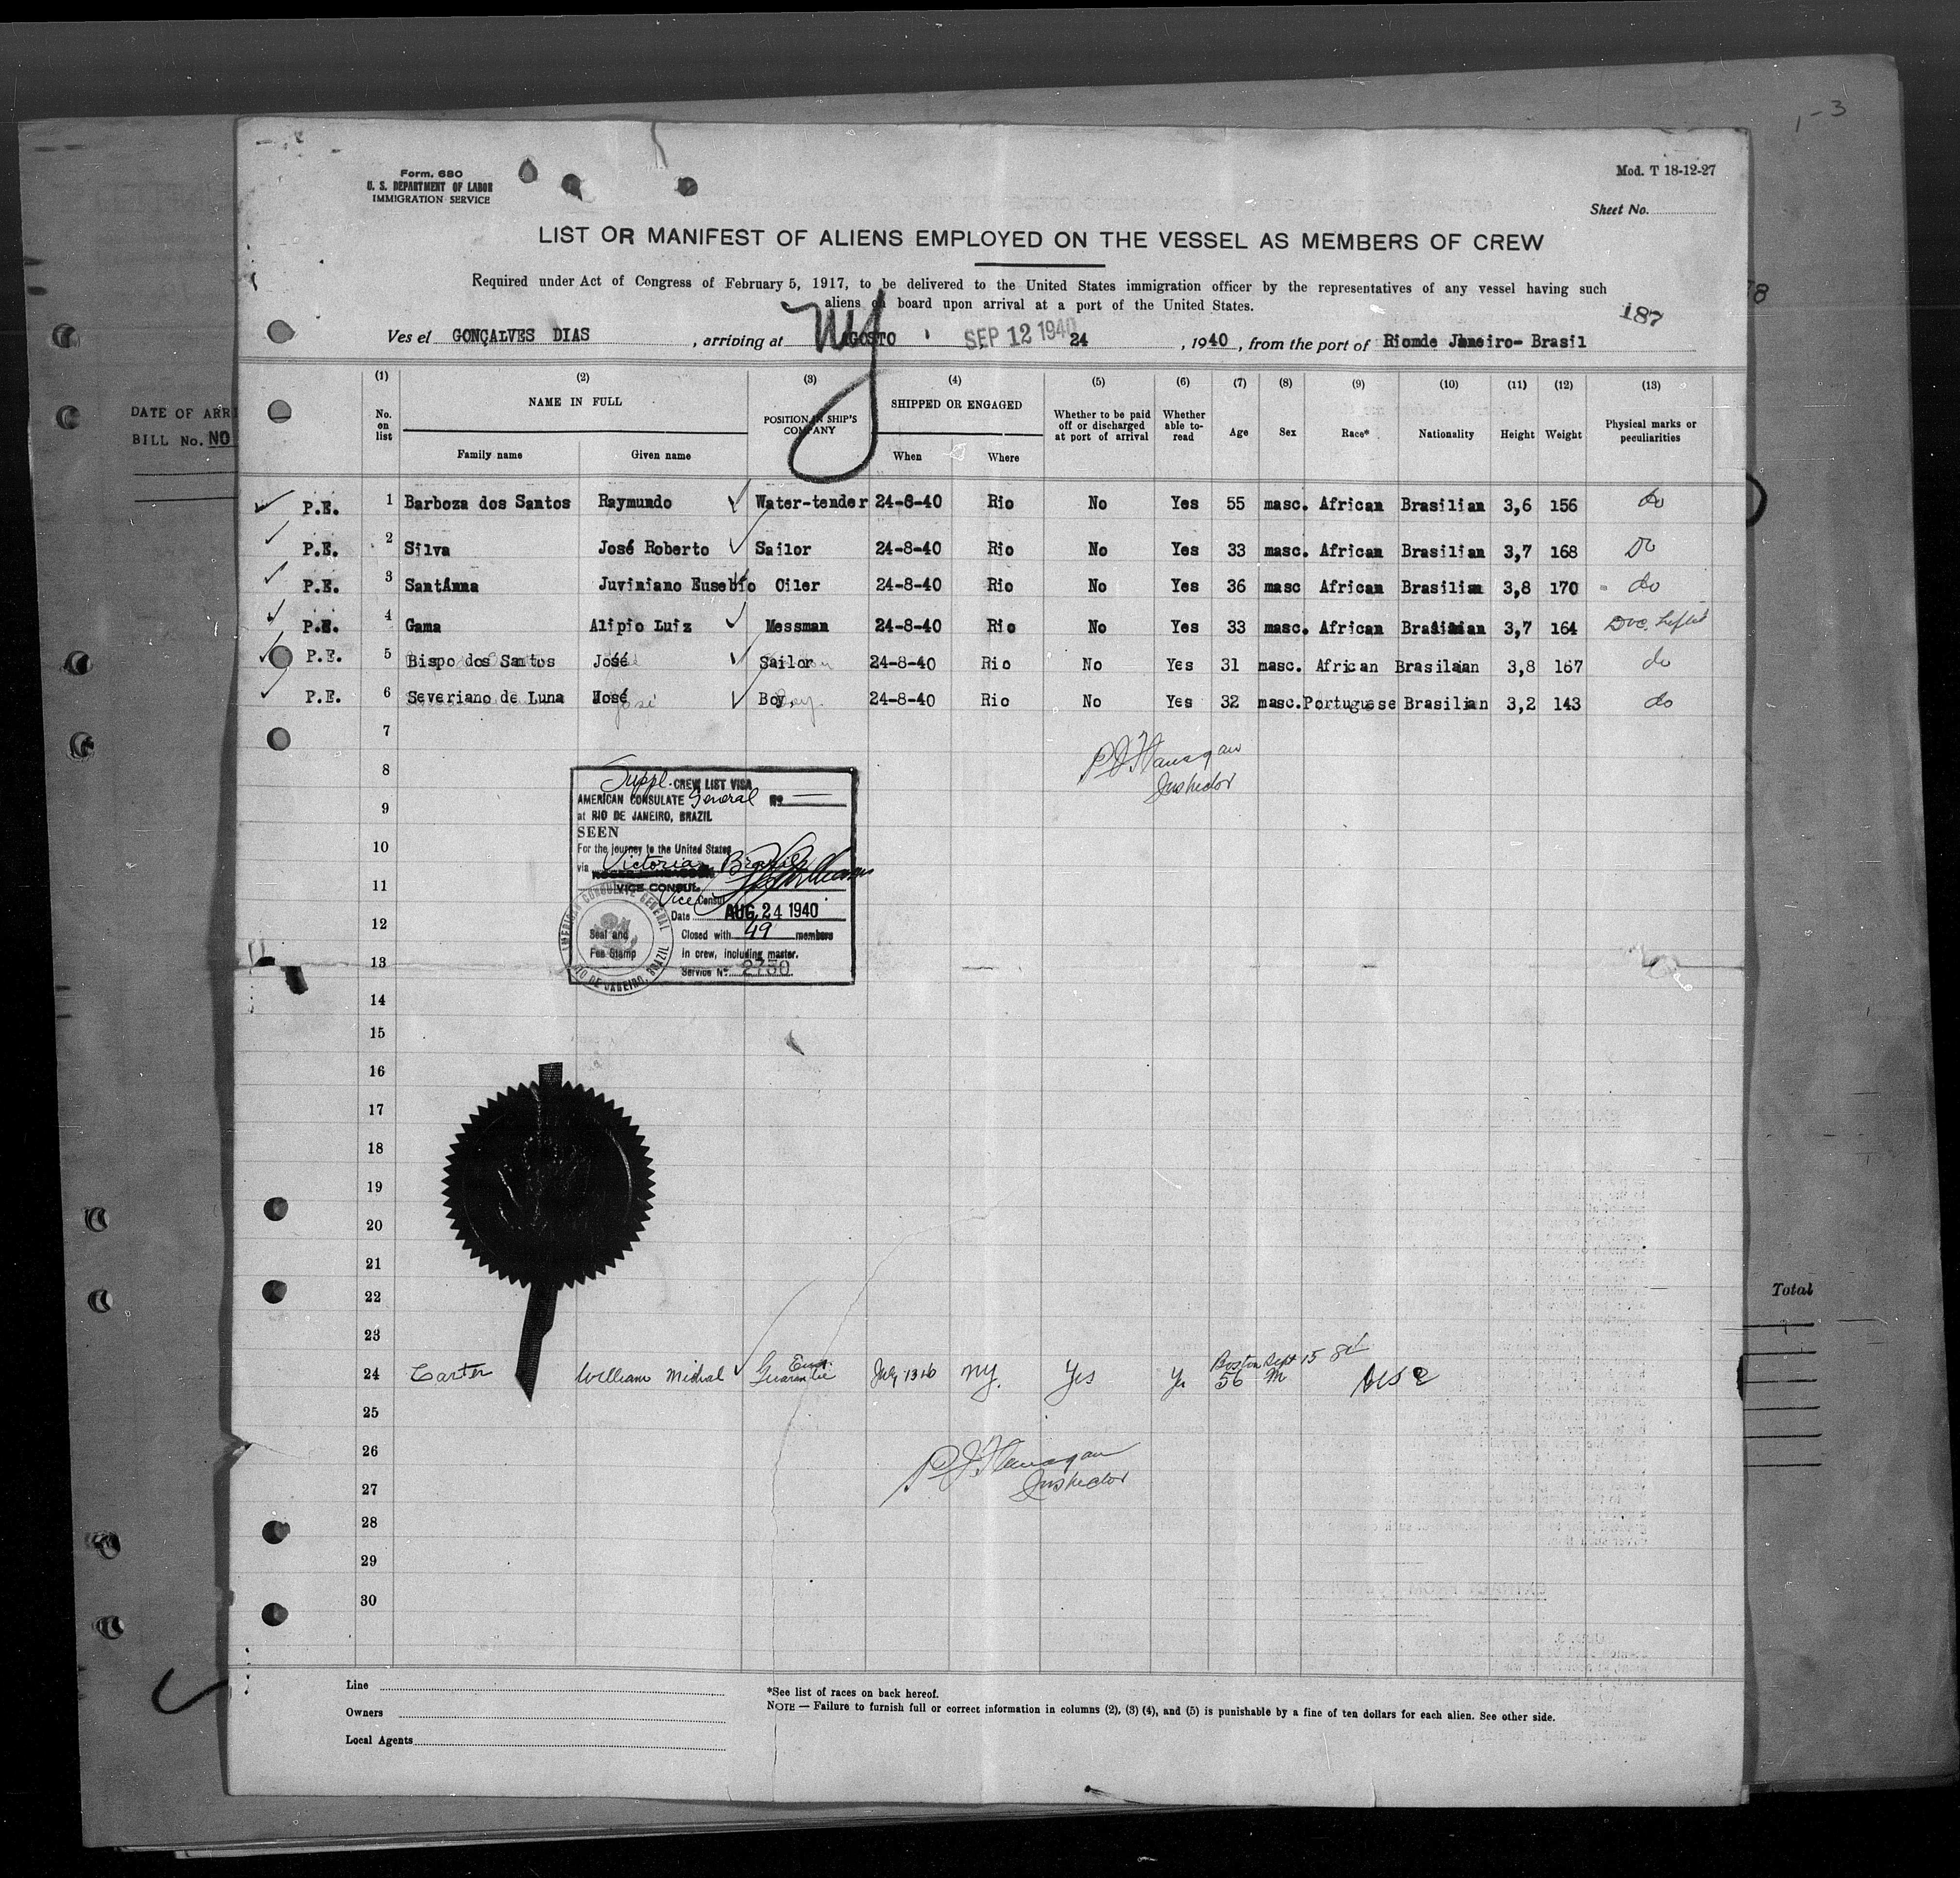 1-3
Form. 680
U. S. DEPARTMENT OF LABOR
IMMIGRATION SERVICE
Mod. T 18-12-27
Sheet No.
LIST OR MANIFEST OF ALIENS EMPLOYED ON THE VESSEL AS MEMBERS OF CREW
Required under Act of Congress of February 5, 1917, to be delivered to the United States immigration officer by the representatives of any vessel having such
aliens on board upon arrival at a port of the United States.
187
78
Ves el GONÇALVES DIAS , arriving at NY AGOSTO SEP 12 1940 24 , 1940 , from the port of Riomde Janeiro- Brasil
DATE OF ARRI
BILL No. NO
(1) (2) (3) (4) (5) (6) (7) (8) (9) (10) (11) (12) (13)
No. on list NAME IN FULL Family name Given name POSITION IN SHIP'S COMPANY SHIPPED OR ENGAGED When Where Whether to be paid off or discharged at port of arrival Whether able to- read Age Sex Race* Nationality Height Weight Physical marks or peculiarities
P.E. 1 Barboza dos Santos Raymundo Water-tender 24-8-40 Rio No Yes 55 masc. African Brasilian 3,6 156 do
P.E. 2 Silva José Roberto Sailor 24-8-40 Rio No Yes 33 masc. African Brasilian 3,7 168 Do
P.E. 3 SantAnna Juviniano Eusebio Oiler 24-8-40 Rio No Yes 36 masc African Brasilian 3,8 170 do
P.E. 4 Gama Alipio Luiz Messman 24-8-40 Rio No Yes 33 masc. African Brasilian 3,7 164
P.E. 5 Bispo dos Santos José Sailor 24-8-40 Rio No Yes 31 masc. African Brasilaan 3,8 167 do
P.E. 6 Severiano de Luna José Boy, 24-8-40 Rio No Yes 32 masc. Portuguese Brasilian 3,2 143 do
7
P J Flanagan
Inspector
8
Suppl. CREW LIST VISA
AMERICAN CONSULATE General No
at RIO DE JANEIRO, BRAZIL
9
SEEN
For the journey to the United States
10
via Victoria, Brazil
11
VICE CONSUL
Vice Consul
Date AUG 24 1940
12
Closed with 49 members
In crew, including master.
Service No. 2750
AMERICAN CONSULATE GENERAL
RIO DE JANEIRO, BRAZIL
Seal and
Fee Stamp
13
14
15
16
17
18
19
20
21
22
23
Boston Sept 15
24 Carter William Michal Guarantee Eng. July 13 NY. Yes Yes 56 M
25
26
P J Flanagan
Inspector
27
28
29
30
Total
Line
Owners
Local Agents
*See list of races on back hereof.
NOTE — Failure to furnish full or correct information in columns (2), (3) (4), and (5) is punishable by a fine of ten dollars for each alien. See other side.